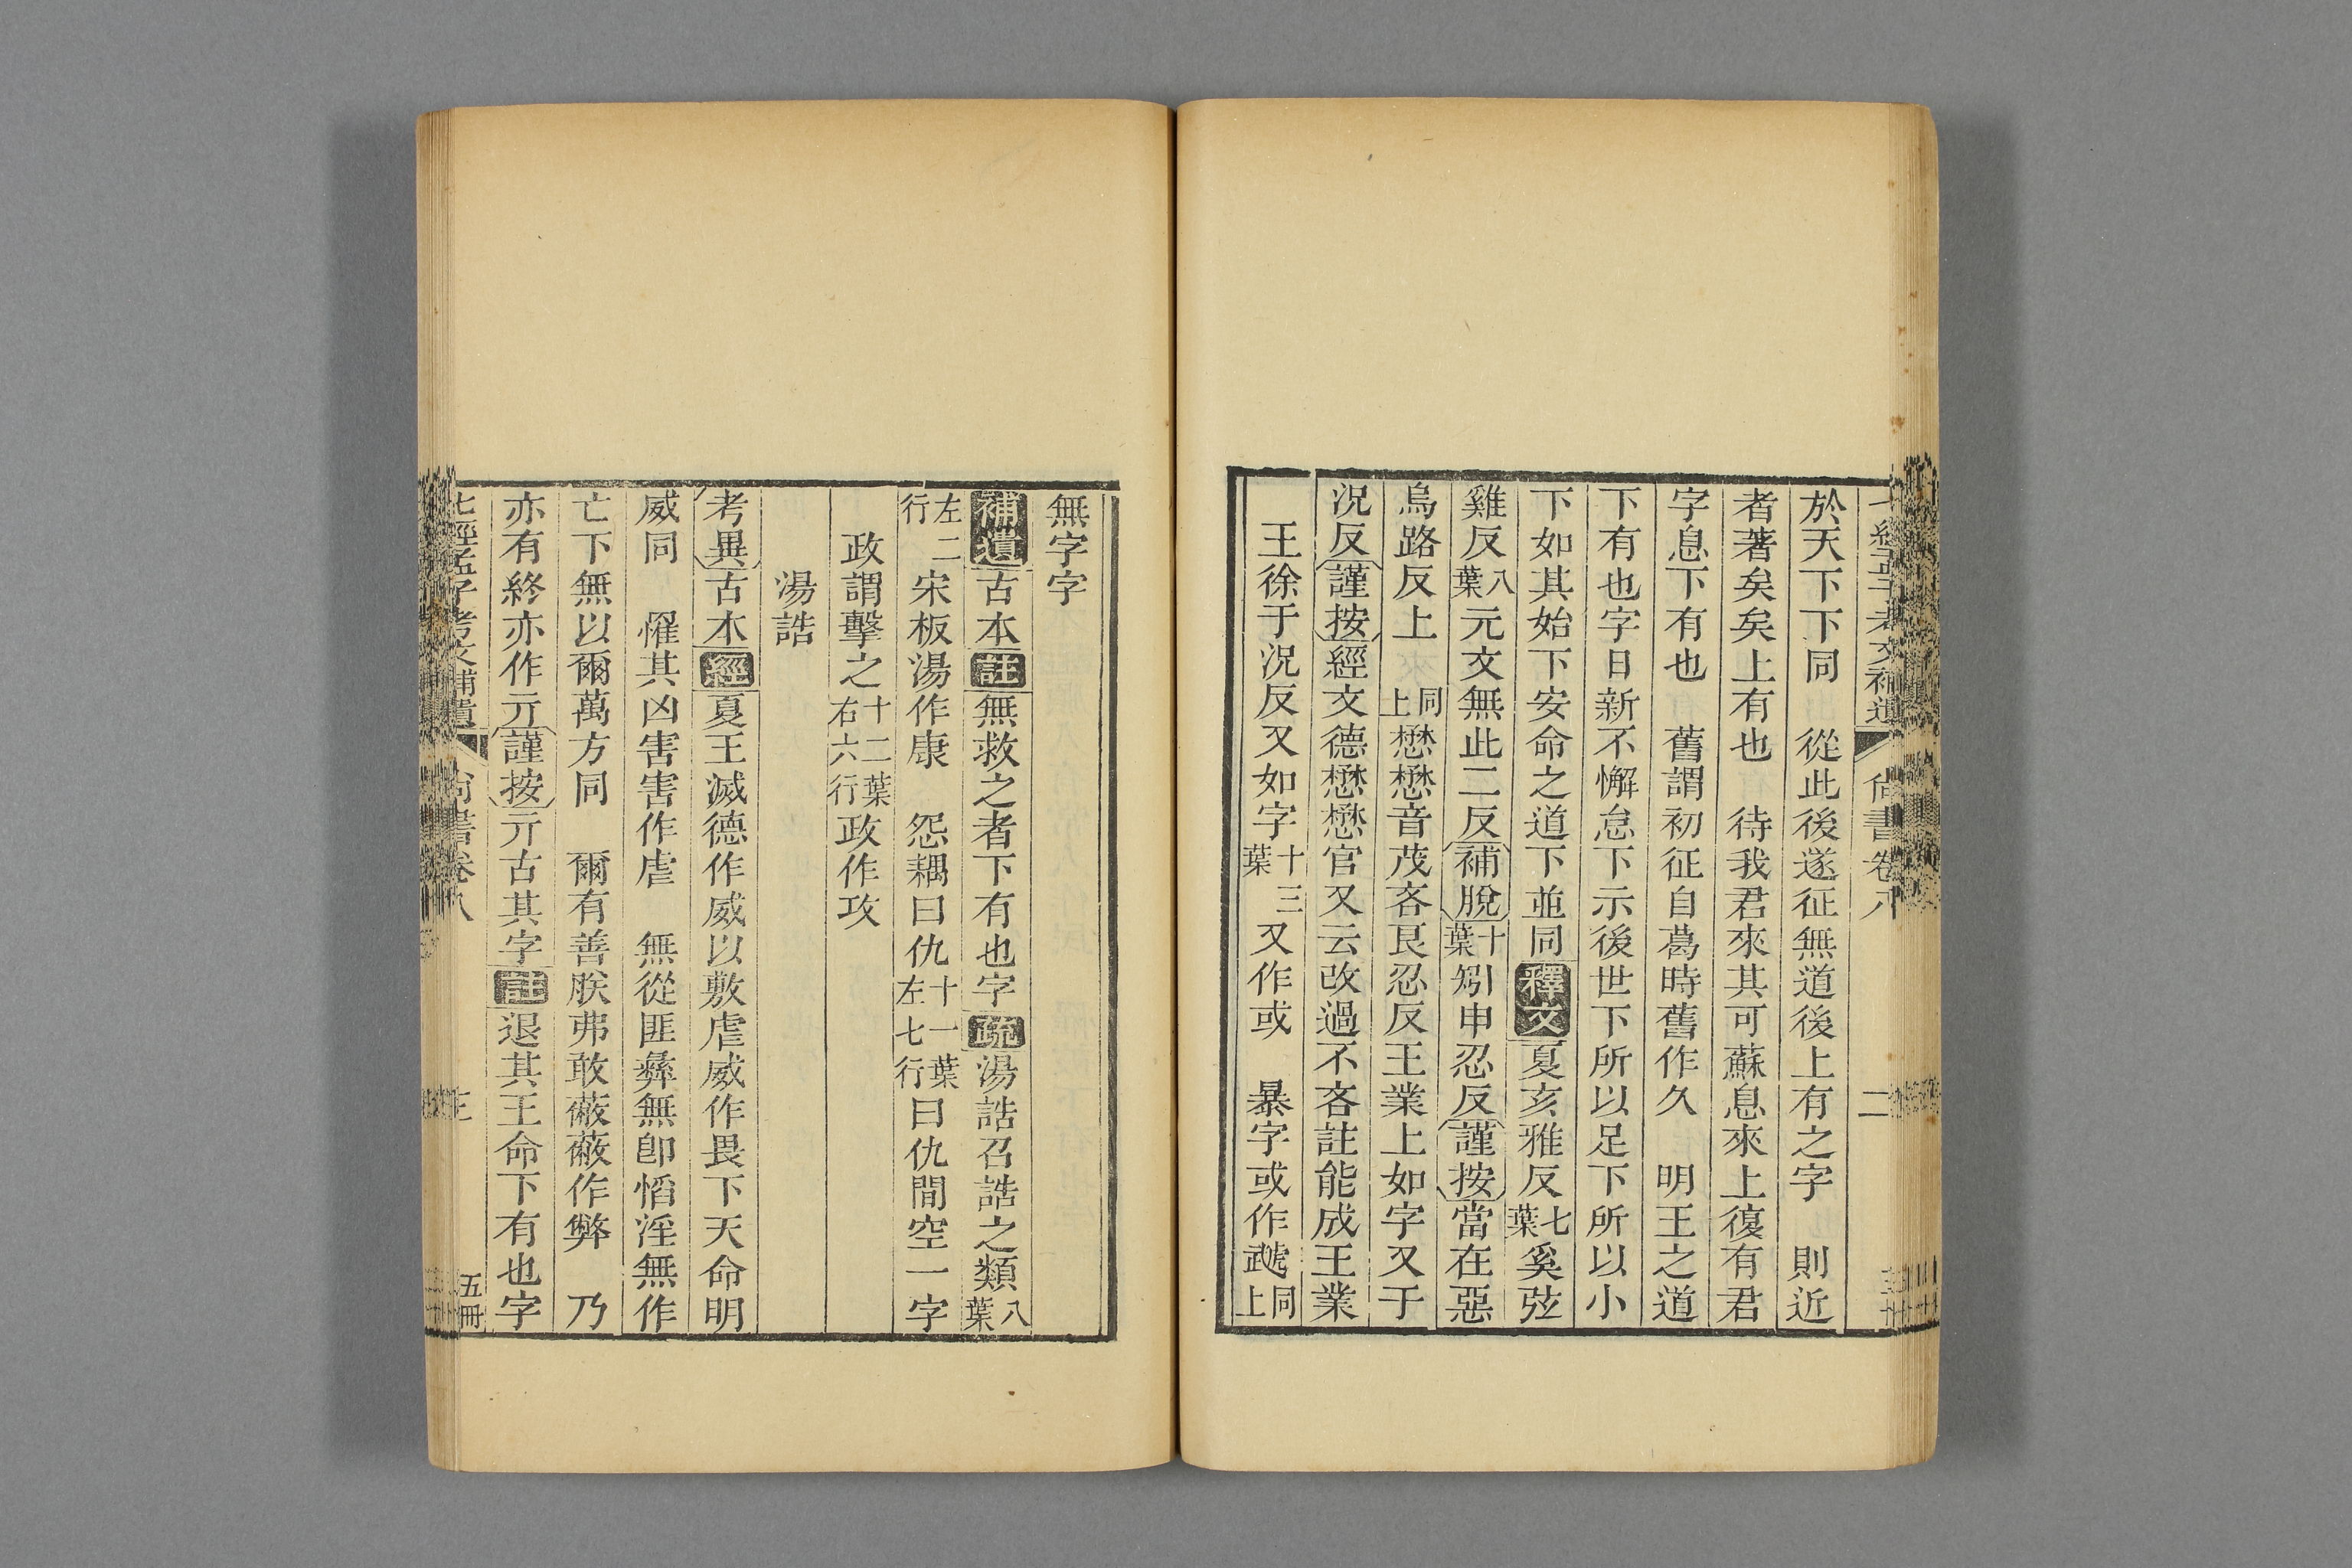 七經孟子考文補遺 尚書卷八 二
於天下下同 從此後遂征無道後上有之字 則近
者著矣矣上有也 待我君來其可蘇息來上復有君
字息下有也 舊謂初征自葛時舊作久 明王之道
下有也字日新不懈怠下示後世下所以足下所以小
下如其始下安命之道下並同釋文夏亥雅反七葉奚弦
雞反八葉元文無此二反補脫十葉矧申忍反謹按當在惡
烏路反上 同上懋懋音茂吝艮忍反王業上如字又于
況反謹按經文德懋懋官又云改過不吝註能成王業
王徐于況反又如字十三葉又作或 暴字或作虣同上
無字字
補遺古本註無救之者下有也字疏湯誥召誥之類八葉
左二行宋板湯作康 怨耦曰仇十一葉左七行曰仇間空一字
政謂擊之十二葉右六行政作攻
湯誥
考異古本經夏王滅德作威以敷虐威作畏下天命明
威同 罹其凶害害作虐 無從匪彝無卽慆淫無作
亡下無以爾萬方同 爾有善朕弗敢蔽蔽作弊 乃
亦有終亦作亓謹按亓古其字註退其王命下有也字
七經孟子考文補遺 尚書卷八 三 五冊